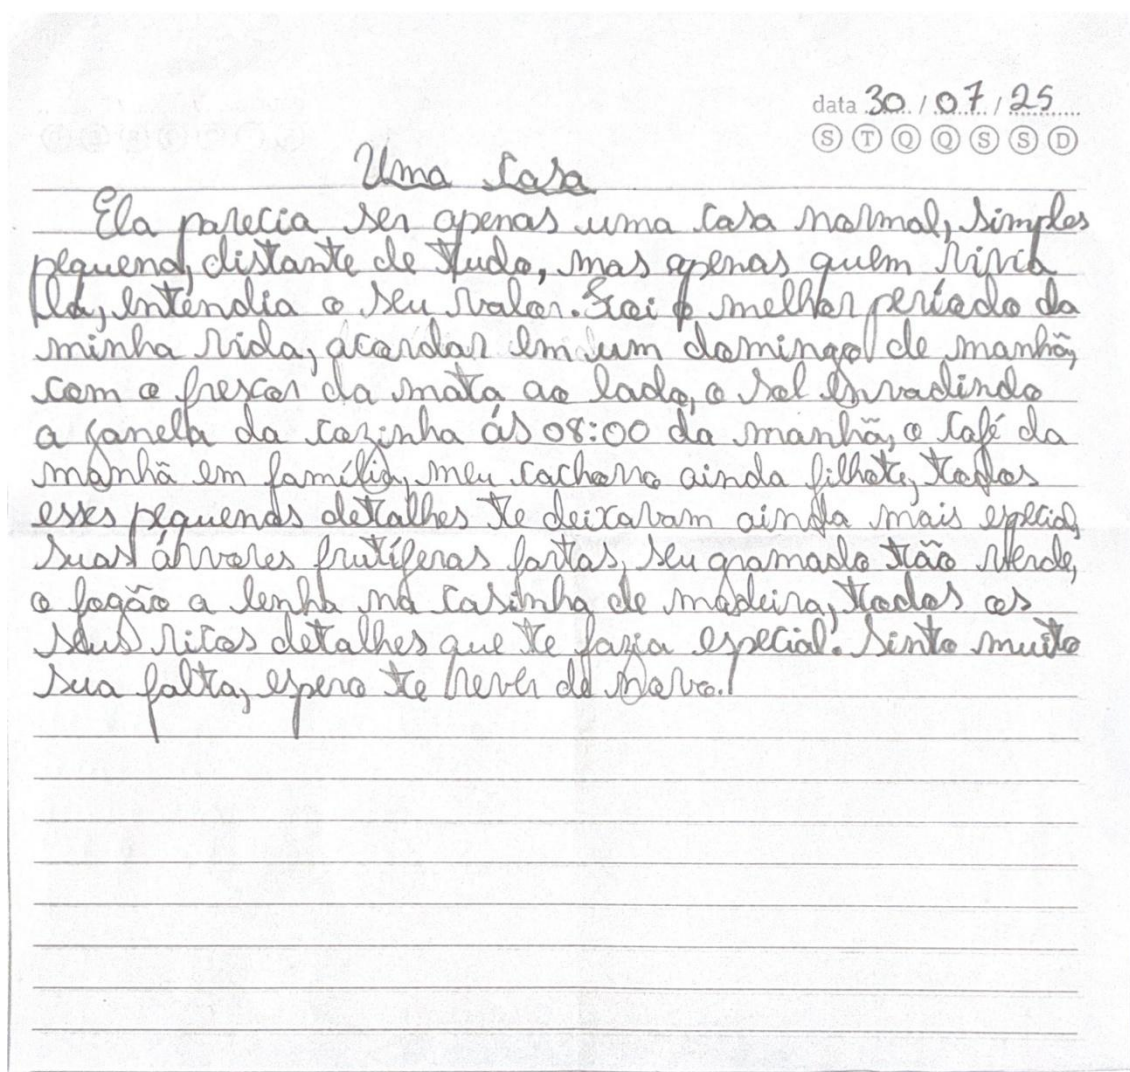 data 30 / 07 / 25
S T Q Q S S D
Uma Casa
Ela parecia ser apenas uma casa normal, simples
pequena, distante de tudo, mas apenas quem vivia
lá, entendia o seu valor. Foi o melhor período da
minha vida, acordar em um domingo de manhã,
com o frescor da mata ao lado, o sol invadindo
a janela da cozinha ás 08:00 da manhã, o café da
manhã em família, meu cachorro ainda filhote, todos
esses pequenos detalhes te deixavam ainda mais especial,
suas árvores frutíferas fartas, seu gramado tão verde,
o fogão a lenha na casinha de madeira, todos os
seus ricos detalhes que te fazia especial. Sinto muito
sua falta, espero te rever de novo.